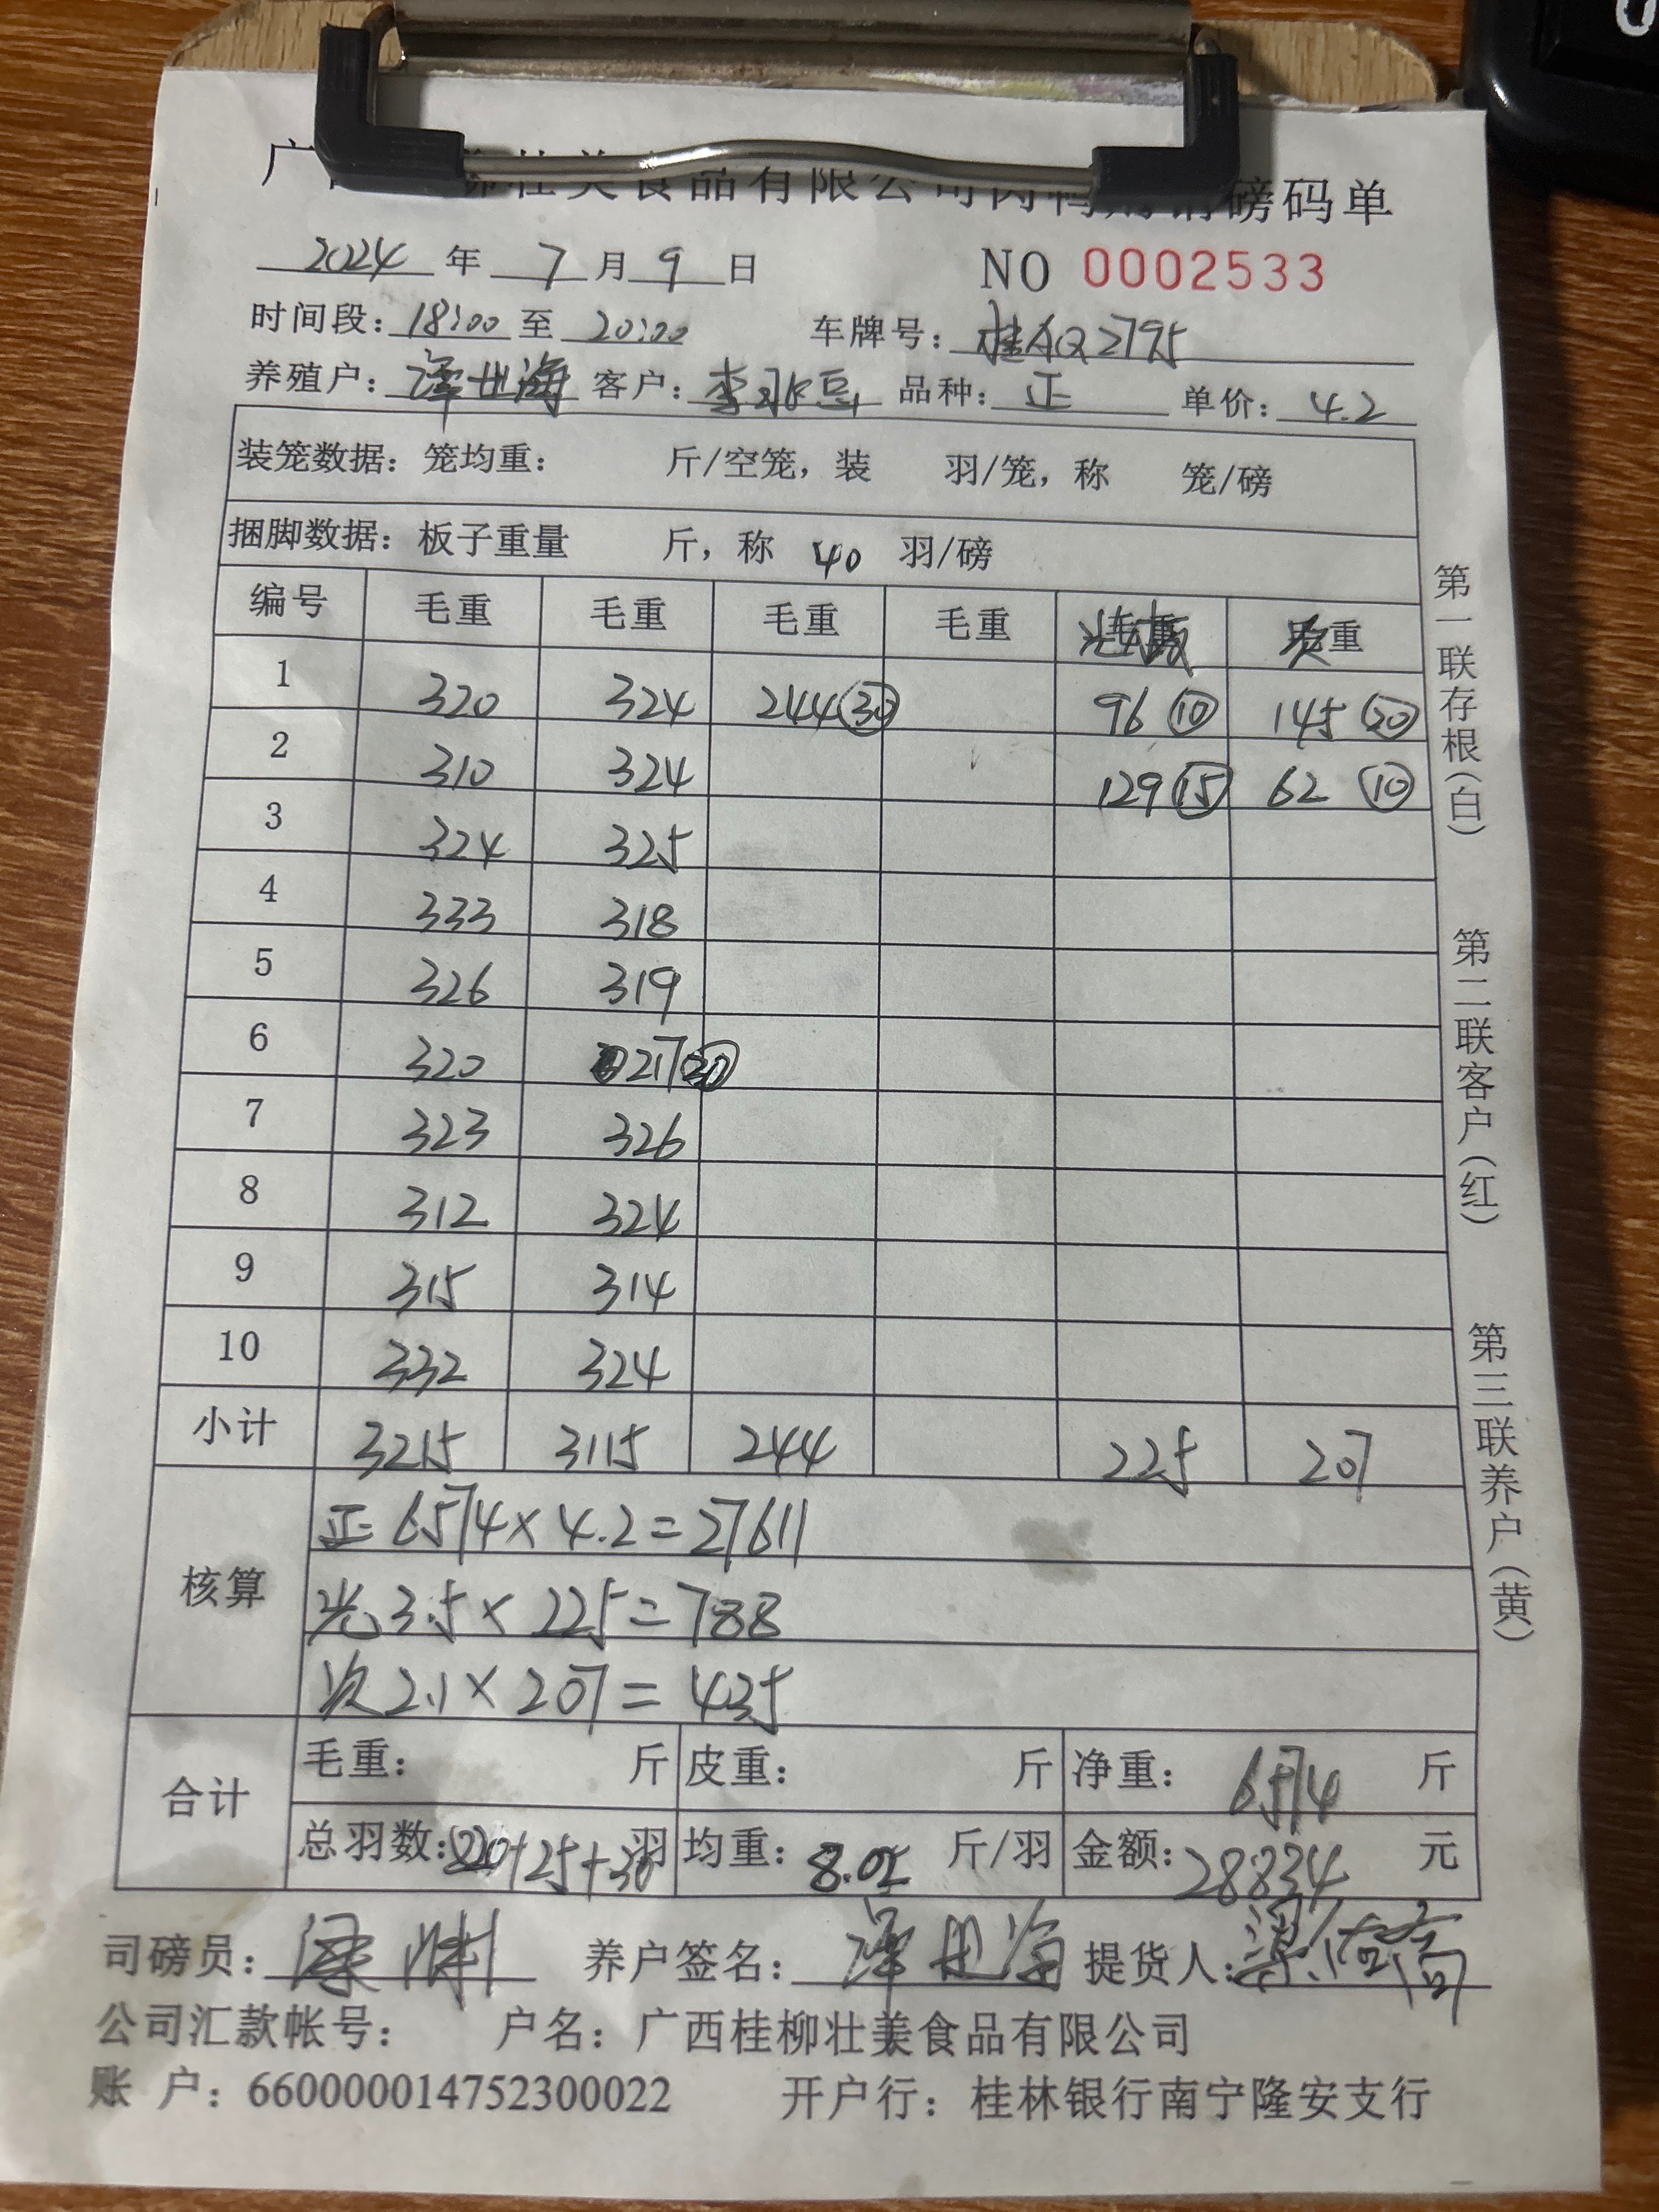 食品有限公司 磅码单
2024年7月9日 NO 0002533
时间段：18:00至20:00 车牌号：桂AQ2795
养殖户：谭世海 客户： 品种：正 单价：4.2
装笼数据：笼均重： 斤/空笼，装 羽/笼，称 笼/磅
捆脚数据：板子重量 斤，称 40 羽/磅
编号 毛重 毛重 毛重 毛重 重
1 320 324 244 30 96 10 145 20
2 310 324 129 15 62 10
3 324 325
4 333 318
5 326 319
6 320 217
7 323 326
8 312 324
9 315 314
10 332 324
小计 3215 3115 244 225 207
核算
正 6574×4.2=27611
光 3.5×225=788
次 2.1×207=435
合计
毛重： 斤 皮重： 斤 净重：6574 斤
总羽数： +25+30羽 均重：8.02 斤/羽 金额：28834 元
司磅员： 养户签名：谭世海 提货人：
公司汇款帐号： 户名：广西桂柳壮美食品有限公司
账 户：660000014752300022 开户行：桂林银行南宁隆安支行
第一联存根（白）
第二联客户（红）
第三联养户（黄）